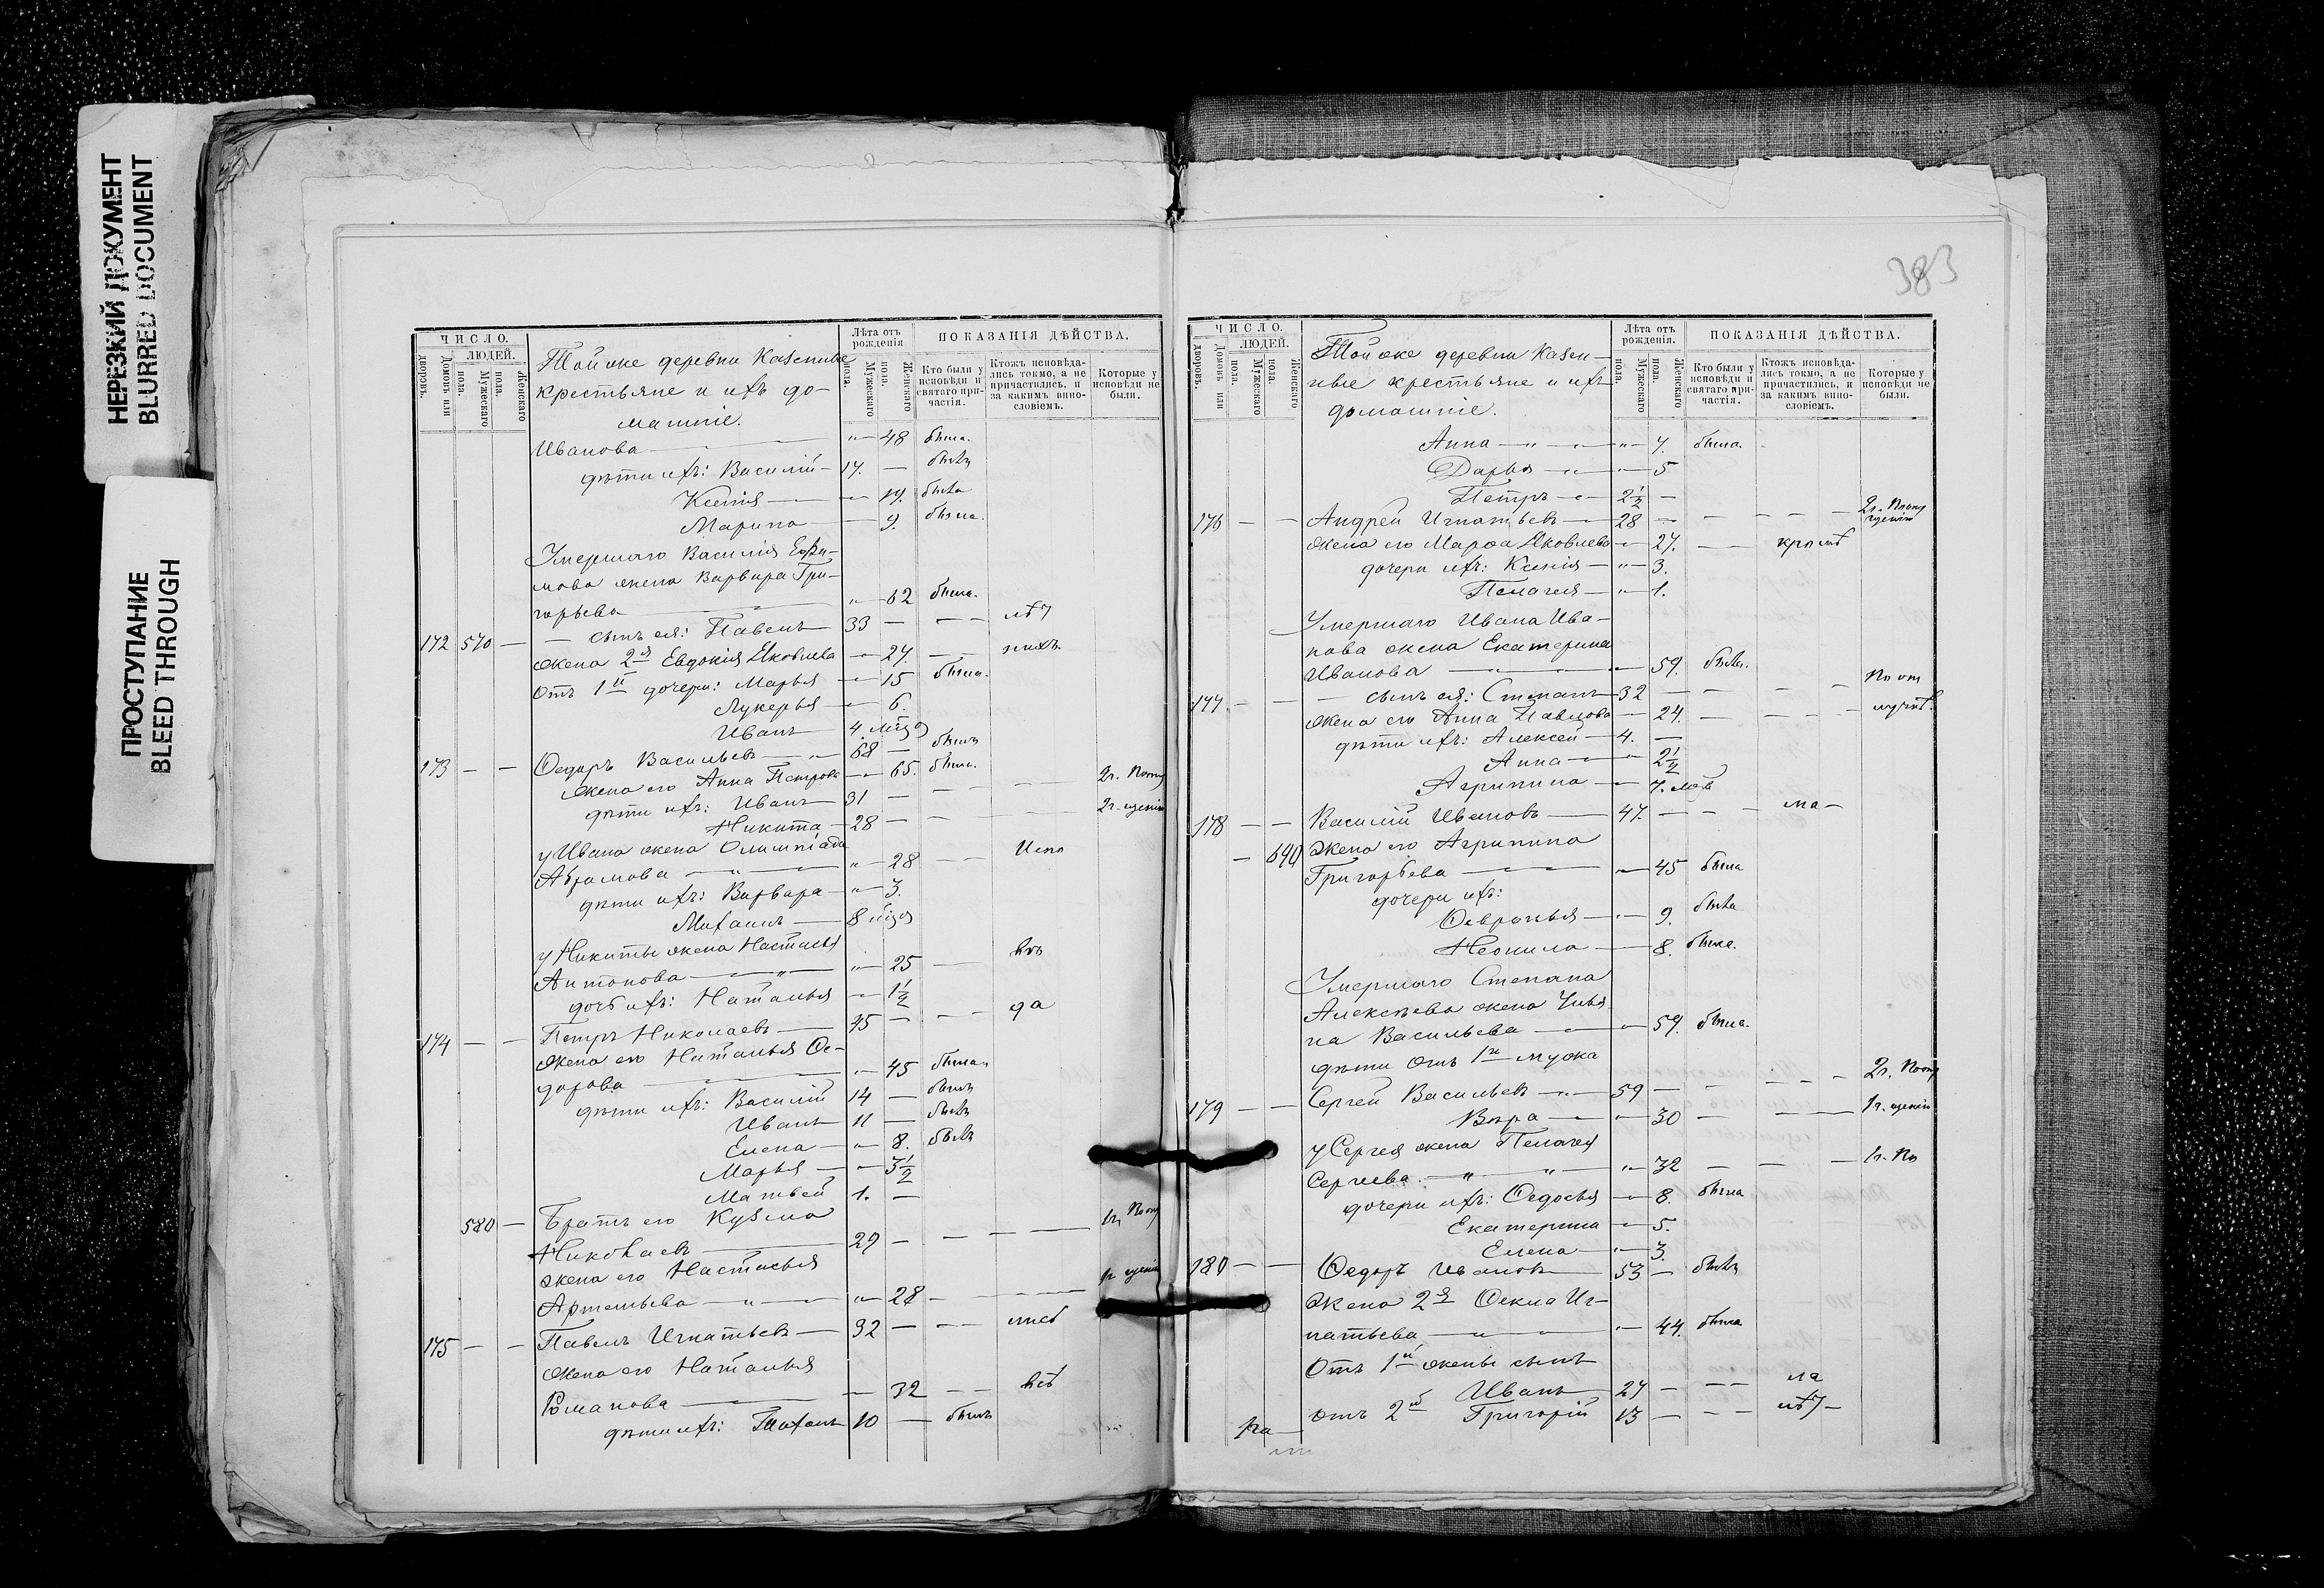 НЕРЕЗКИЙ ДОКУМЕНТ
BLURRED DOCUMENT
ПРОСТУПАНИЕ
BLEED THROUGH
ЧИСЛО.
ЛЮДЕЙ.
Домовъ или дворовъ.
Мужескаго пола.
Женскаго пола.
Лѣта отъ рожденія
Мужескаго пола.
Женскаго пола.
ПОКАЗАНІЯ ДѢЙСТВА.
Кто были у исповѣди и святаго причастія.
Ктожъ исповѣдались токмо, а не причастились, и за какимъ винословіемъ.
Которые у исповѣди не были.
Той же деревни Казенные
крестьяне и ихъ до-
машніе.
Иванова — „ — 48 была.
дѣти ихъ: Василій — 17. — былъ
Ксенія — „ — 19. была
Марина — 9. была.
Умершаго Василія Ефи-
мова жена Варвара Гри-
горьева — „ — 62 была.
172 570 — — сынъ ея: Павелъ 33 — — — лѣт
жена 2я Евдокія Яковлева — 27. —
отъ 1й дочери: Марья — 15 была.
Лукерья — 6.
Иванъ 4. мѣс
173 — — Ѳедоръ Васильевъ — „ 68 — былъ
жена его Анна Петрова — „ 65. была.
дѣти ихъ: Иванъ 31 — — — 2г. по опу
Никита — 28 — — — 2г. щенію
у Ивана жена Олимпіада
Абрамова — „ — „ — 28 — — Испо
дѣти ихъ: Варвара — „ — 3.
Михаилъ — 8 мѣся
у Никиты жена Настасья
Антонова — „ — „ — 25 — вѣ
дочь ихъ: Наталья — 1½
174 — — Петръ Николаевъ — 45 — — — да
жена его Наталья Ѳе-
дорова — „ — 45 была.
дѣти ихъ: Василій 14 — былъ
Иванъ 11 — былъ
Елена — „ — 8. была
Марья — „ — 3½
Матвей 1. —
580 — Братъ его Кузьма
Николаевъ — 29 — — — — 1г. по опу
жена его Настасья
Артемьева — „ — „ — 28 — — — 1г щенію
175 — — Павелъ Игнатьевъ — 32 — — —
жена его Наталья
Романова — — 32 — —
дѣти ихъ: Тихонъ 10 — былъ
383
ЧИСЛО.
ЛЮДЕЙ.
Домовъ или дворовъ.
Мужескаго пола.
Женскаго пола.
Лѣта отъ рожденія.
Мужескаго пола.
Женскаго пола.
ПОКАЗАНІЯ ДѢЙСТВА.
Кто были у исповѣди и святаго причастія.
Ктожъ исповѣдались токмо, а не причастились, и за какимъ винословіемъ.
Которые у исповѣди не были.
Той же деревни Казен-
ные крестьяне и ихъ
домашніе.
Анна — „ — „ — 7. была.
Дарья — „ — 5
Петръ — „ 2½ —
176 — — Андрей Игнатьевъ — 28 — — — — — 2г. по опу щенію
жена его Марѳа Яковлева — „ — 27. —
дочери ихъ: Ксенія — „ — 3.
Пелагея — „ — 1.
Умершаго Ивана Ива-
нова жена Екатерина
Иванова — „ — 59. была.
177 — — — сынъ ея: Степанъ — 32 — — — — По от
жена его Анна Павлова — 24. — — — — лучкѣ.
дѣти ихъ: Алексей — 4. —
Анна — „ 2½
Агрипина — 7. мѣс
178 — — Василій Ивановъ — 47. — — — ма —
— 640 Жена его Агрипина
Григорьева — „ — 45 была
дочери ихъ:
Ѳевронья — „ — 9. была
Неонила — 8. была.
Умершаго Степана
Алексѣева жена Улья
на Васильева — „ — 59. была.
дѣти отъ 1го мужа
179 — — Сергей Васильевъ — „ — 59 — — — — 2г. по опу
Вѣра — „ — 30 — — — 1г. щенію
у Сергея жена Пелагея
Сергиева. — „ — „ — „ — 32 — — — 1г. по
дочери ихъ: Ѳедосья — „ — 8. была
Екатерина — „ — 5.
Елена — „ — 3.
180 — — Ѳедоръ Ивановъ — 53 — былъ
Жена 2я Ѳекла Иг-
натьева — „ — „ — 44. была
Отъ 1й жены сынъ
Иванъ 27 — — — ла
отъ 2й Григорій 13 — — — лѣт —